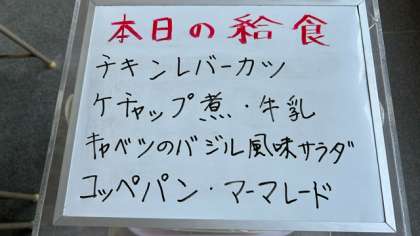 本日の給食
チキンレバーカツ
ケチャップ煮・牛乳
キャベツのバジル風味サラダ
コッペパン・マーマレード